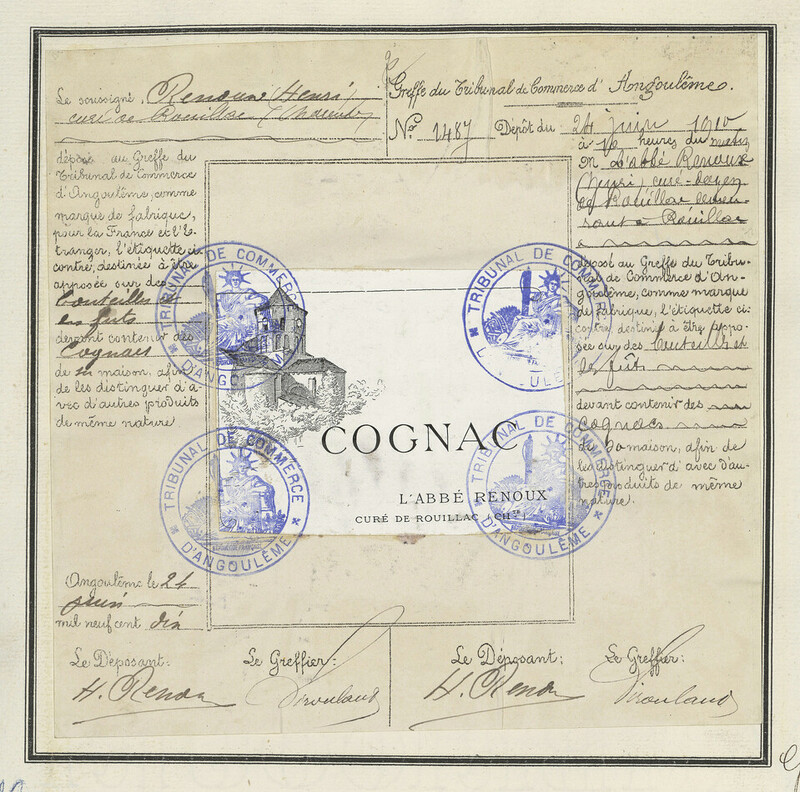 Le soussigné, Renoux (Henri)
curé de Rouillac (Charente)
déposé au Greffe du
Tribunal de Commerce
d'Angoulême, comme
marque de fabrique,
pour la France et l'É-
tranger, l'étiquette ci
contre, destinée à être
apposée sur des
bouteilles et
les fûts
devant contenir des
Cognacs
de sa maison, afin
de les distinguer d'a-
vec d'autres produits
de même nature
Angoulême le 24
juin
mil neuf cent dix
Le Déposant:
Le Greffier:
H. Renoux
Greffe du Tribunal de Commerce d'Angoulême.
N° 1487 Dépôt du 24 juin 1910
à 10 heures du matin
M. l'abbé Renoux
(Henri) curé-doyen
de Rouillac demeu-
rant à Rouillac
a
déposé au Greffe du Tribu-
nal de Commerce d'An-
goulême, comme marque
de fabrique, l'étiquette ci-
contre destinée à être appo-
sée sur des bouteilles et
les fûts
devant contenir des
cognacs.
de sa maison, afin de
les distinguer d'avec d'au-
tres produits de même
nature.
Le Déposant:
Le Greffier:
H. Renoux
COGNAC
L'ABBÉ RENOUX
CURÉ DE ROUILLAC (CHTE)
TRIBUNAL DE COMMERCE
D'ANGOULÊME
TRIBUNAL DE COMMERCE
TRIBUNAL DE COMMERCE
D'ANGOULÊME
TRIBUNAL DE COMMERCE
D'ANGOULÊME